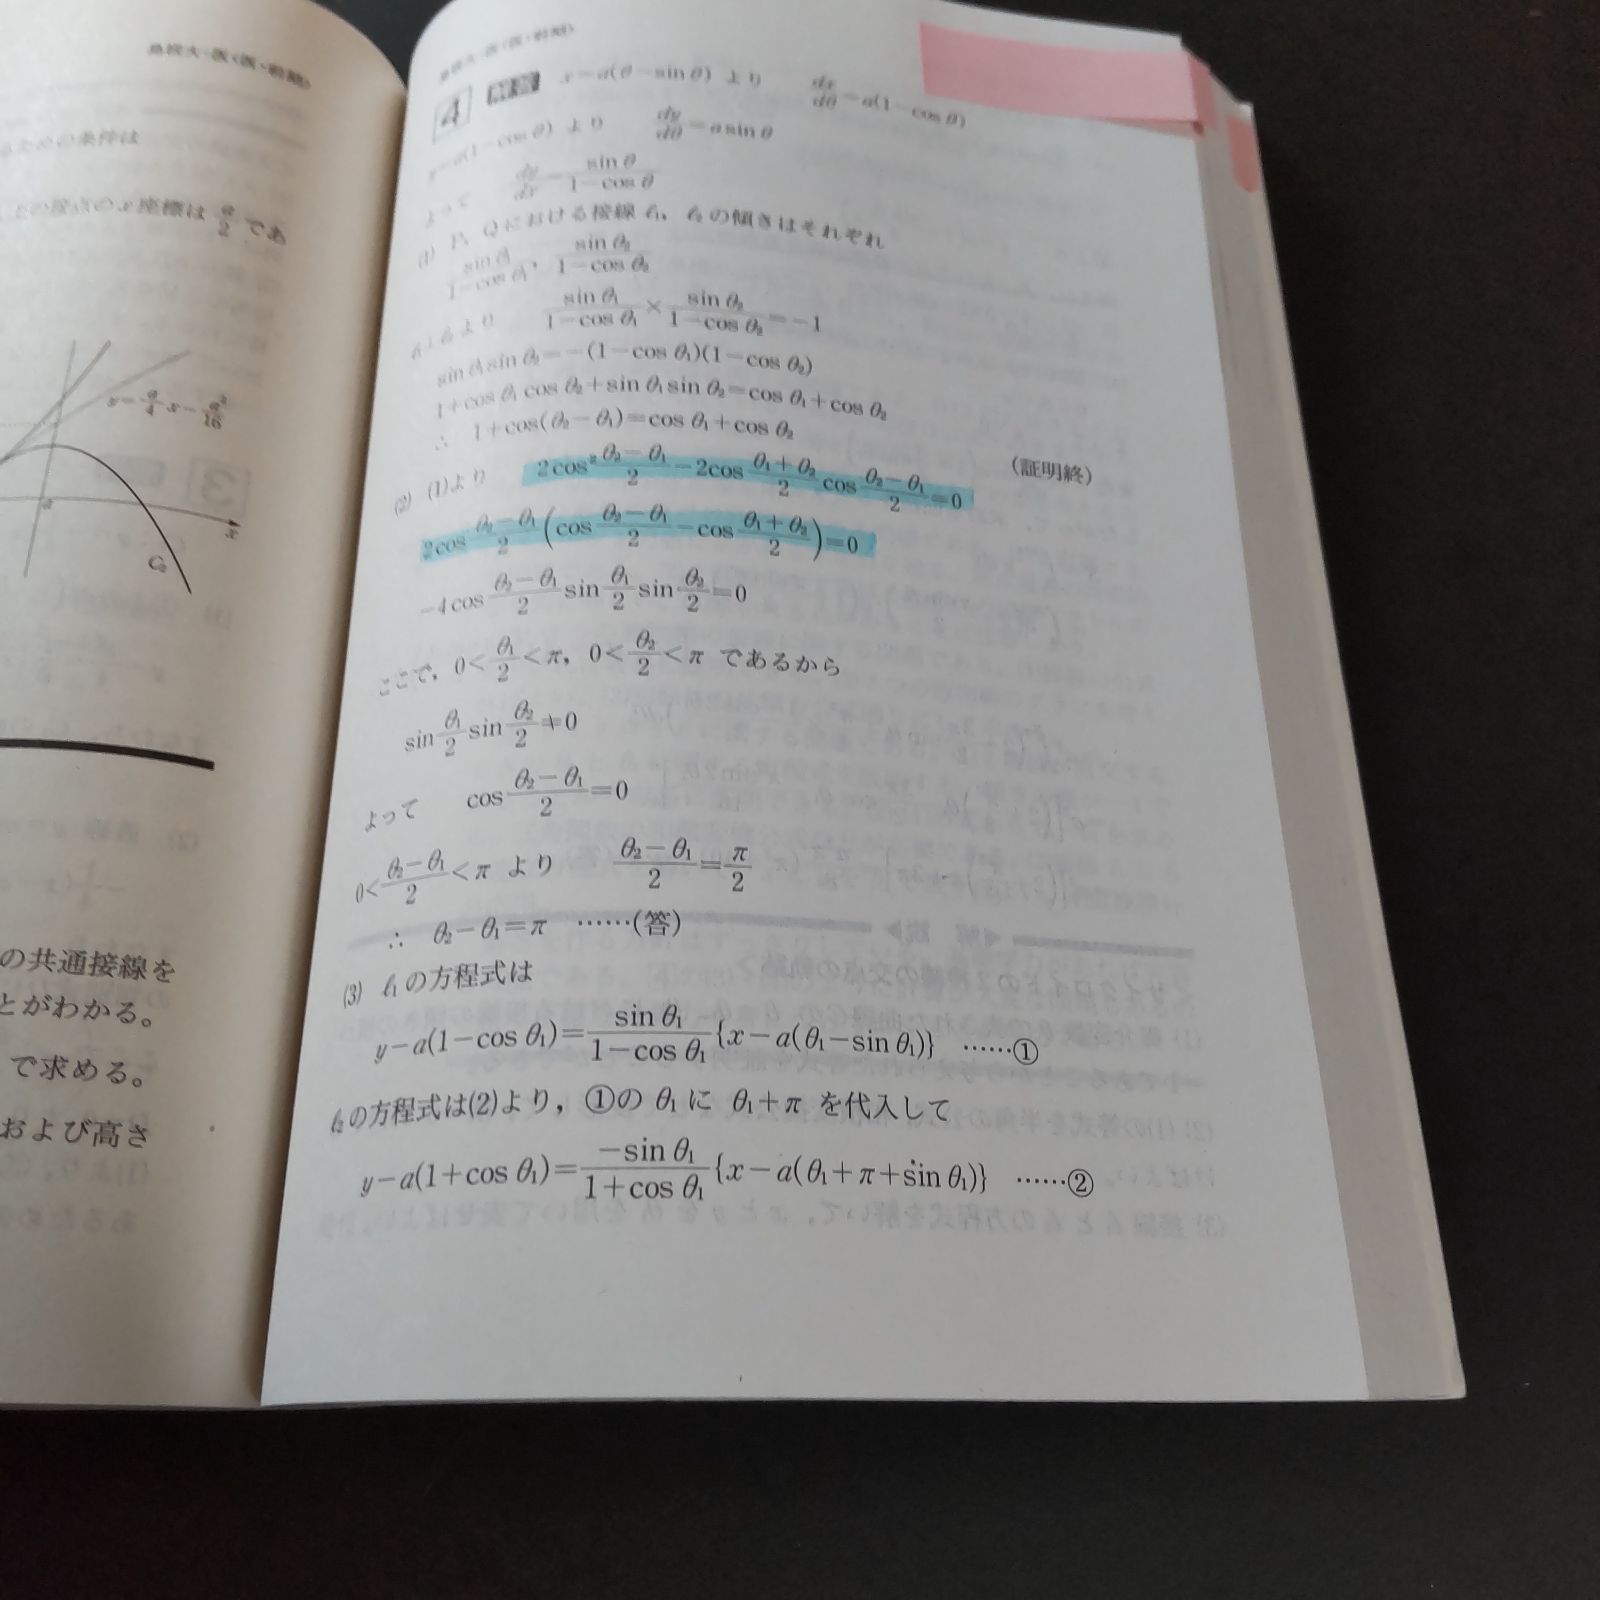 島根大-医〈医・前期〉
ための条件は
との接点のx座標は a/2 であ
y=a/4 x−a²/16
x
C₂
の共通接線を
とがわかる。
で求める。
および高さ
島根大-医〈医・前期〉
4 解答 x=a(θ−sinθ) より dx/dθ=a(1−cosθ)
y=a(1−cosθ) より dy/dθ=a sinθ
よって dy/dx=sinθ/(1−cosθ)
(1) P, Qにおける接線 ℓ₁, ℓ₂の傾きはそれぞれ
sinθ₁/(1−cosθ₁), sinθ₂/(1−cosθ₂)
ℓ₁⊥ℓ₂より sinθ₁/(1−cosθ₁)×sinθ₂/(1−cosθ₂)=−1
sinθ₁sinθ₂=−(1−cosθ₁)(1−cosθ₂)
1+cosθ₁cosθ₂+sinθ₁sinθ₂=cosθ₁+cosθ₂
∴ 1+cos(θ₂−θ₁)=cosθ₁+cosθ₂ (証明終)
(2) (1)より 2cos²(θ₂−θ₁)/2−2cos(θ₁+θ₂)/2 cos(θ₂−θ₁)/2=0
2cos(θ₂−θ₁)/2(cos(θ₂−θ₁)/2−cos(θ₁+θ₂)/2)=0
−4cos(θ₂−θ₁)/2 sin θ₁/2 sin θ₂/2=0
ここで, 0<θ₁/2<π, 0<θ₂/2<π であるから
sin θ₁/2 sin θ₂/2≠0
よって cos(θ₂−θ₁)/2=0
0<(θ₂−θ₁)/2<π より (θ₂−θ₁)/2=π/2
∴ θ₂−θ₁=π ……(答)
(3) ℓ₁の方程式は
y−a(1−cosθ₁)=sinθ₁/(1−cosθ₁){x−a(θ₁−sinθ₁)} ……①
ℓ₂の方程式は(2)より, ①の θ₁に θ₁+π を代入して
y−a(1+cosθ₁)=−sinθ₁/(1+cosθ₁){x−a(θ₁+π+sinθ₁)} ……②